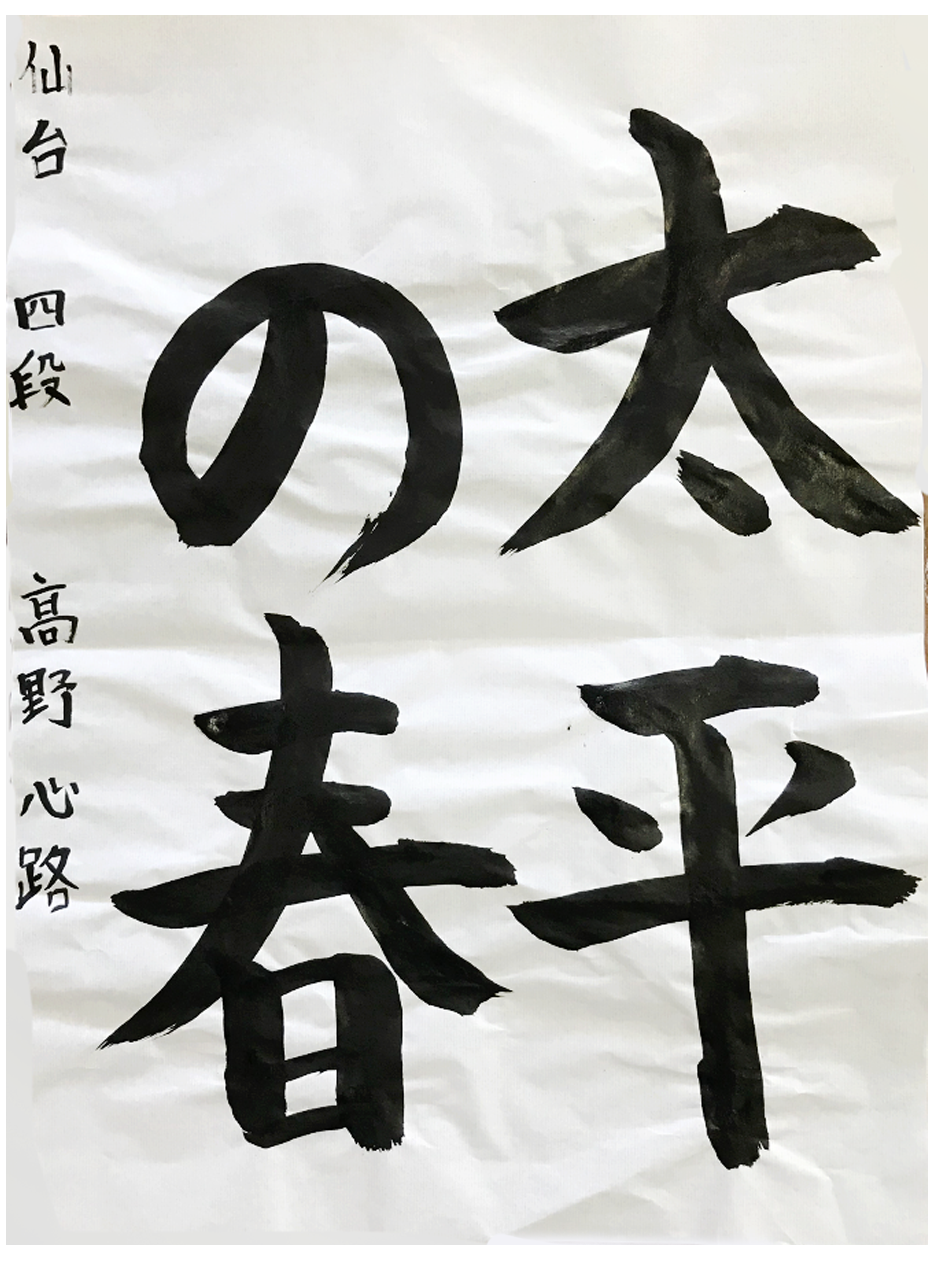 太平
の春
仙台 四段 高野 心路